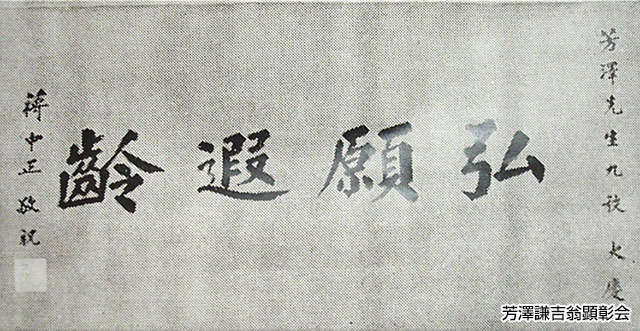 芳澤先生九秩大慶
弘願遐齡
蔣中正敬祝
芳澤謙吉翁顕彰会